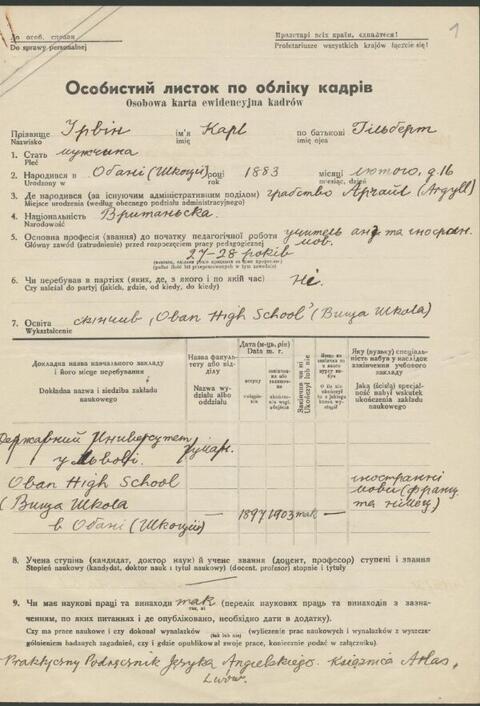 До особ. справи
Do sprawy personalnej
Пролетарі всіх країн, єднайтеся!
Proletariusze wszystkich krajów łączcie się!
1
Особистий листок по обліку кадрів
Osobowa karta ewidencyjna kadrów
Прізвище Ірвін ім'я Карл по батькові Гільберт
Nazwisko imię imię ojca
1. Стать мужчына
Płeć
2. Народився в Обані (Шкоції) році 1883 місяці лютого, д. 16
Urodzony w rok miesiąc, dzień
3. Де народився (за існуючим адміністративним поділом) графство Аргайл (Argyll)
Miejsce urodzenia (według obecnego podziału administracyjnego)
4. Національність Британьска.
Narodowość
5. Основна професія (звання) до початку педагогічної роботи учитель анг та иностран.
Główny zawód (zatrudnienie) przed rozpoczęciem pracy pedagogicznej мов.
27-28 років
6. Чи перебував в партіях (яких, де, з якого і по якій час) Ні.
Czy należał do partyj (jakich, gdzie, od kiedy, do kiedy)
7. Освіта скінчив „Oban High School" (Вища Школа)
Wykształcenie
Докладна назва навчального закладу і його місце перебування
Dokładna nazwa i siedziba zakładu naukowego
Назва факультету або відділу
Nazwa wydziału albo oddziału
Дата (м-ць, рік)
Data m. r.
вступу
Закінчив чи ні
Ukończył lub nie
Яку (вузьку) спеціальність набув у наслідок закінчення учбового закладу
Jaką (ścisłą) specjalność nabył wskutek ukończenia zakładu naukowego
Державний Университет
у Львові. гуман.
Oban High School
(Вища Школа
в Обані (Шкоции) 1897 1903 так —
иностранні
мови (франц
та німец)
8. Учена ступінь (кандидат, доктор наук) й учене звання (доцент, професор) ступені і звання
Stopień naukowy (kandydat, doktor nauk i tytuł naukowy) (docent, profesor) stopnie i tytuły
9. Чи має наукові праці та винаходи так (перелік наукових праць та винаходів з зазначенням, по яких питаннях і де опубліковано, необхідно дати в додатку).
Czy ma prace naukowe i czy dokonał wynalazków (tak lub nie) (wyliczenie prac naukowych i wynalazków z wyszczególnieniem badanych zagadnień, czy i gdzie opublikował swe prace, koniecznie podać w załączniku).
Praktyczny Podręcznik Języka Angielskiego. Książnica Atlas,
Lwów.